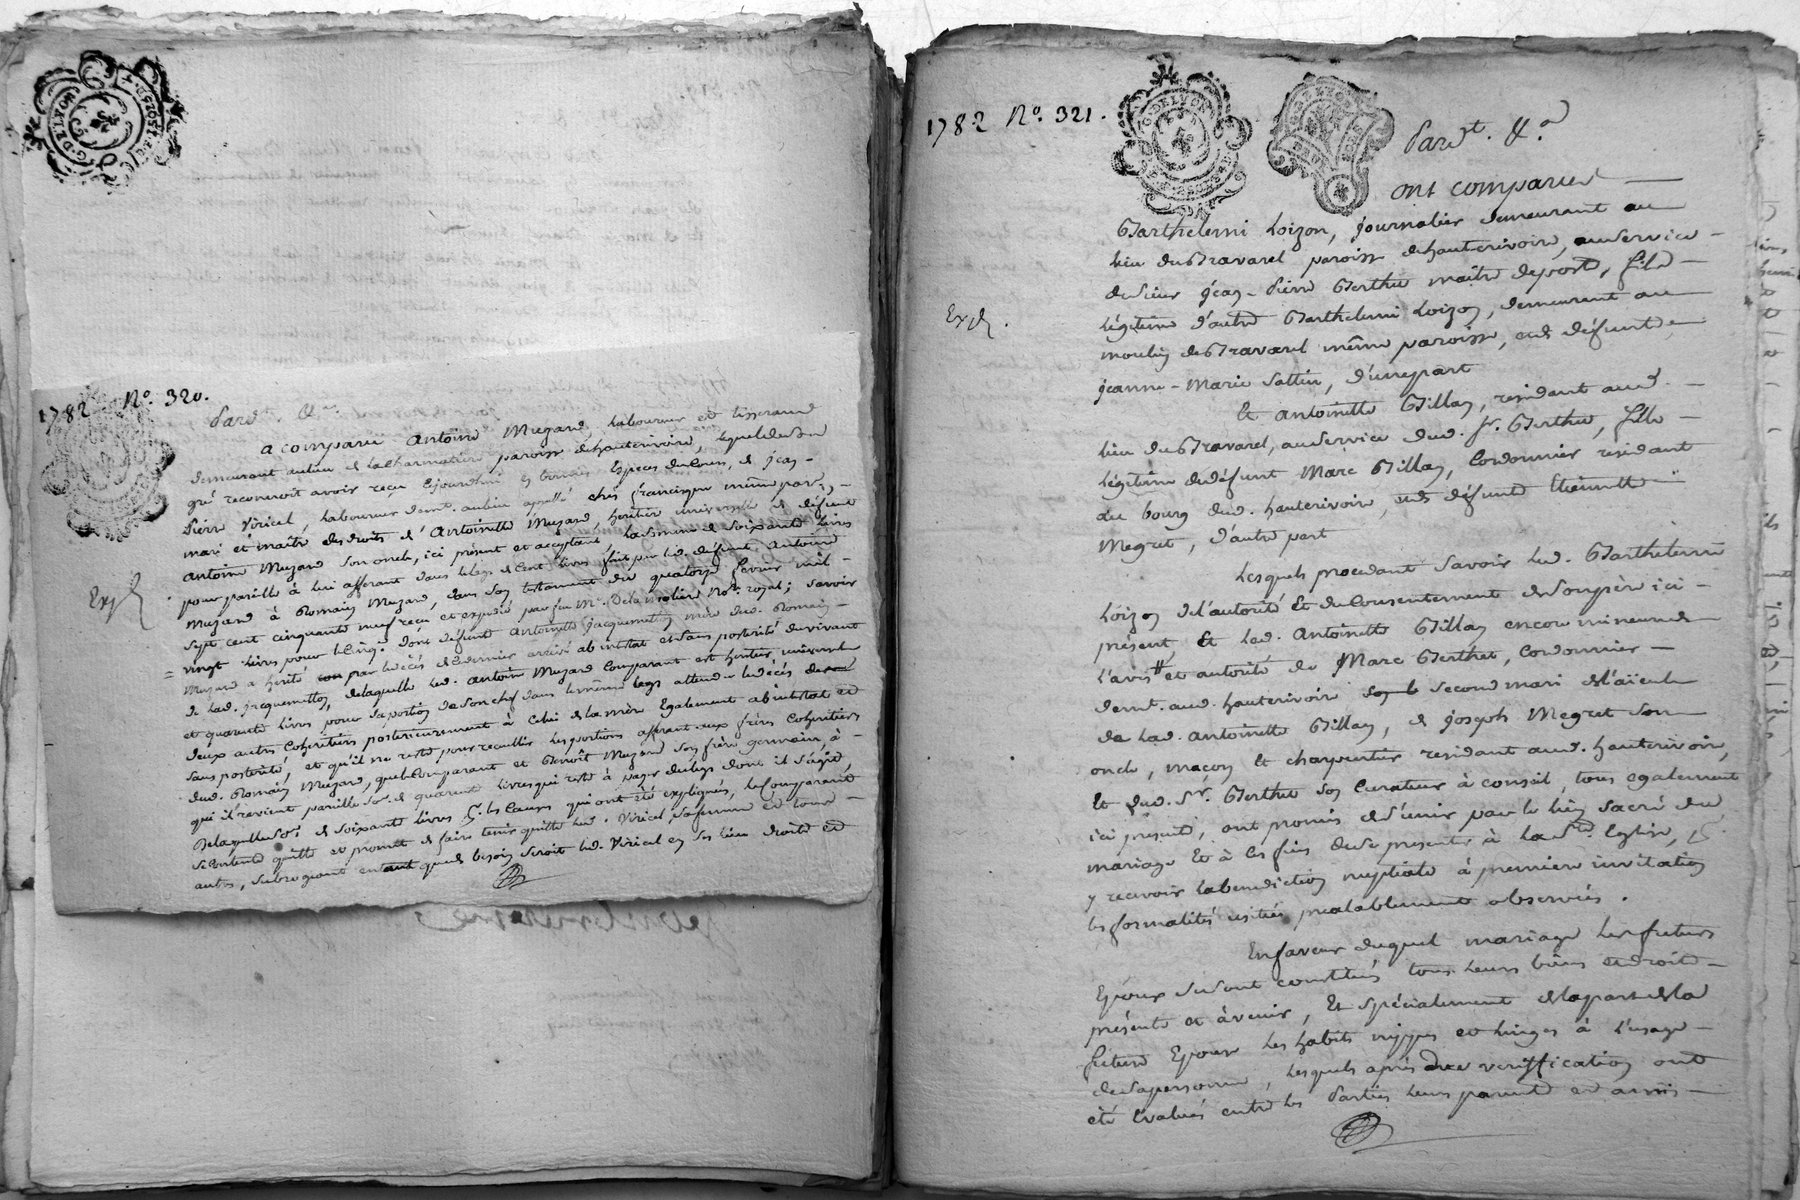 G. DE LYON
1782 No. 320.
Pard.t &a.
a comparu Antoine Muzard laboureur et tisserand
demeurant au lieu de la charmatiere paroisse dhauterivoire, lequel de son
gré reconnoit avoir reçu cejourdhui en bonnes Especes du Cours, de jean-
Pierre Viricel, laboureur demt. au lieu appellé chés francisque même paroisse,
mari et maître des droits d'Antoinette Muzard, heritiere universelle de défunt
Antoine Muzard son oncle, ici présent et acceptant la somme de soixante livres
pour pareille à lui afferant dans le legs de Cent livres fait par led. défunt Antoine
Muzard à Romain Muzard, dans son testament du quatorze fevrier mil-
sept cent cinquante neuf reçu et expedié par feu Me. Delamoliere Nore. royal; savoir
vingt livres pour le Cinq.e dont défunte Antoinette jacquemetton mere dud. Romain
Muzard a hérité par le décès de ce dernier arrivé ab intestat et sans posterité du vivant
de lad. jacquemetton, de laquelle led. antoine Muzard Comparant est heritier universel
et quarante livres pour sa portion de son chef dans le même legs attendu le décès de
deux autres Coheritiers posterieurement à Celui de la mère Egalement ab intestat et
sans posterité, et qu'il ne reste pour recueillir les portions afferant aux frères Coheritiers
dud. Romain Muzard, que le Comparant et Benoît Muzard son frère germain, à
qui il revient pareille so.e de quarante livres qui reste à payer du legs dont il s'agit,
De laquelle so.e de soixante livres p. les Causes qui ont été expliquées, le Comparant
se Contente quitte et promet de faire tenir quitte led. Viricel, sa femme et tous
autres, subrogeant entant que de besoin seroit led. Viricel en ses lieu droits et
Exp.
1782 No. 321.
G. DE LYON
Pard.t &a.
ont comparus
Barthelemi Loizon, journalier demeurant au
lieu du Bravarel paroisse dhauterivoire, au service
de sieur jean-Pierre Berthet maître de poste, fils
légitime d'autre Barthelemi Loizon, demeurant au
moulin de Bravarel même paroisse, et de défunte
jeanne-Marie Sattin, d'une part
Et Antoinette Billan, residant aud.
lieu du Bravarel, au service dud. Sr. Berthet, fille
légitime de défunt Marc Billan, Cordonnier residant
au bourg dud. hauterivoire, et de défunte Etiennette
Megret, d'autre part
Lesquels procedant savoir led. Barthelemi
Loizon de l'autorité Et du Consentement de son père ici
présent Et lad. Antoinette Billan encore mineure de
l'avis et autorité de Marc Berthet, Cordonnier
demt. aud. hauterivoire second mari de l'aïeule
de lad. Antoinette Billan, de joseph Megret son
oncle, maçon Et charpentier residant aud. hauterivoire,
Et dud. Sr. Berthet son Curateur à conseil, tous egalement
ici présents, ont promis de s'unir par le lien sacré du
mariage Et à ces fins de se presenter à la Ste. Eglise, p.
y recevoir la benediction nuptiale à premiere invitation
les formalités usitées prealablement observées.
En faveur duquel mariage les futurs
Epoux se sont constitués tous leurs biens et droits
présents et à venir, Et spécialement de la part de la
future Epouse les habits nippes et linges à l'usage
de sa personne, lesquels après due veriffication ont
été évalués entre les Parties leurs parents et amis
Exp.